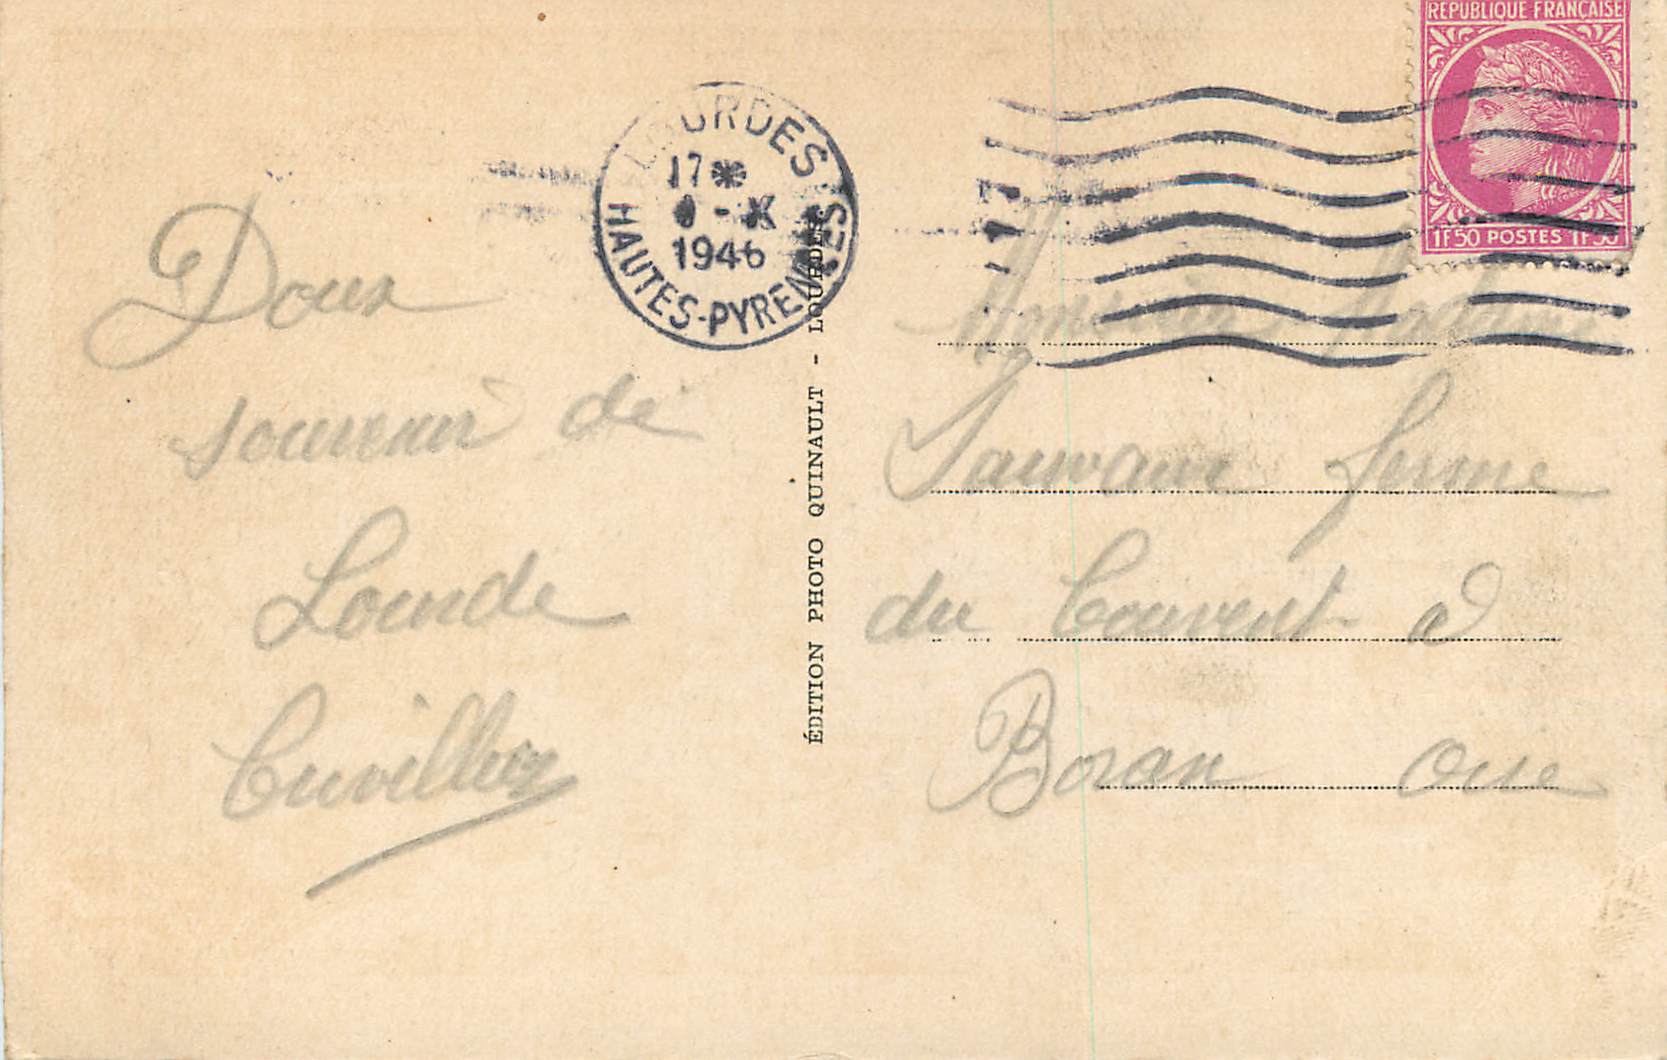 Doux
souvenir de
Lourde
Cuvillier
LOURDES
17 *
- X
1946
HAUTES-PYRENEES
ÉDITION PHOTO QUINAULT - LOURDES
REPUBLIQUE FRANÇAISE
1F50 POSTES 1F50
Monsieur Madame
ferme
du Couvent a
Boran Oise